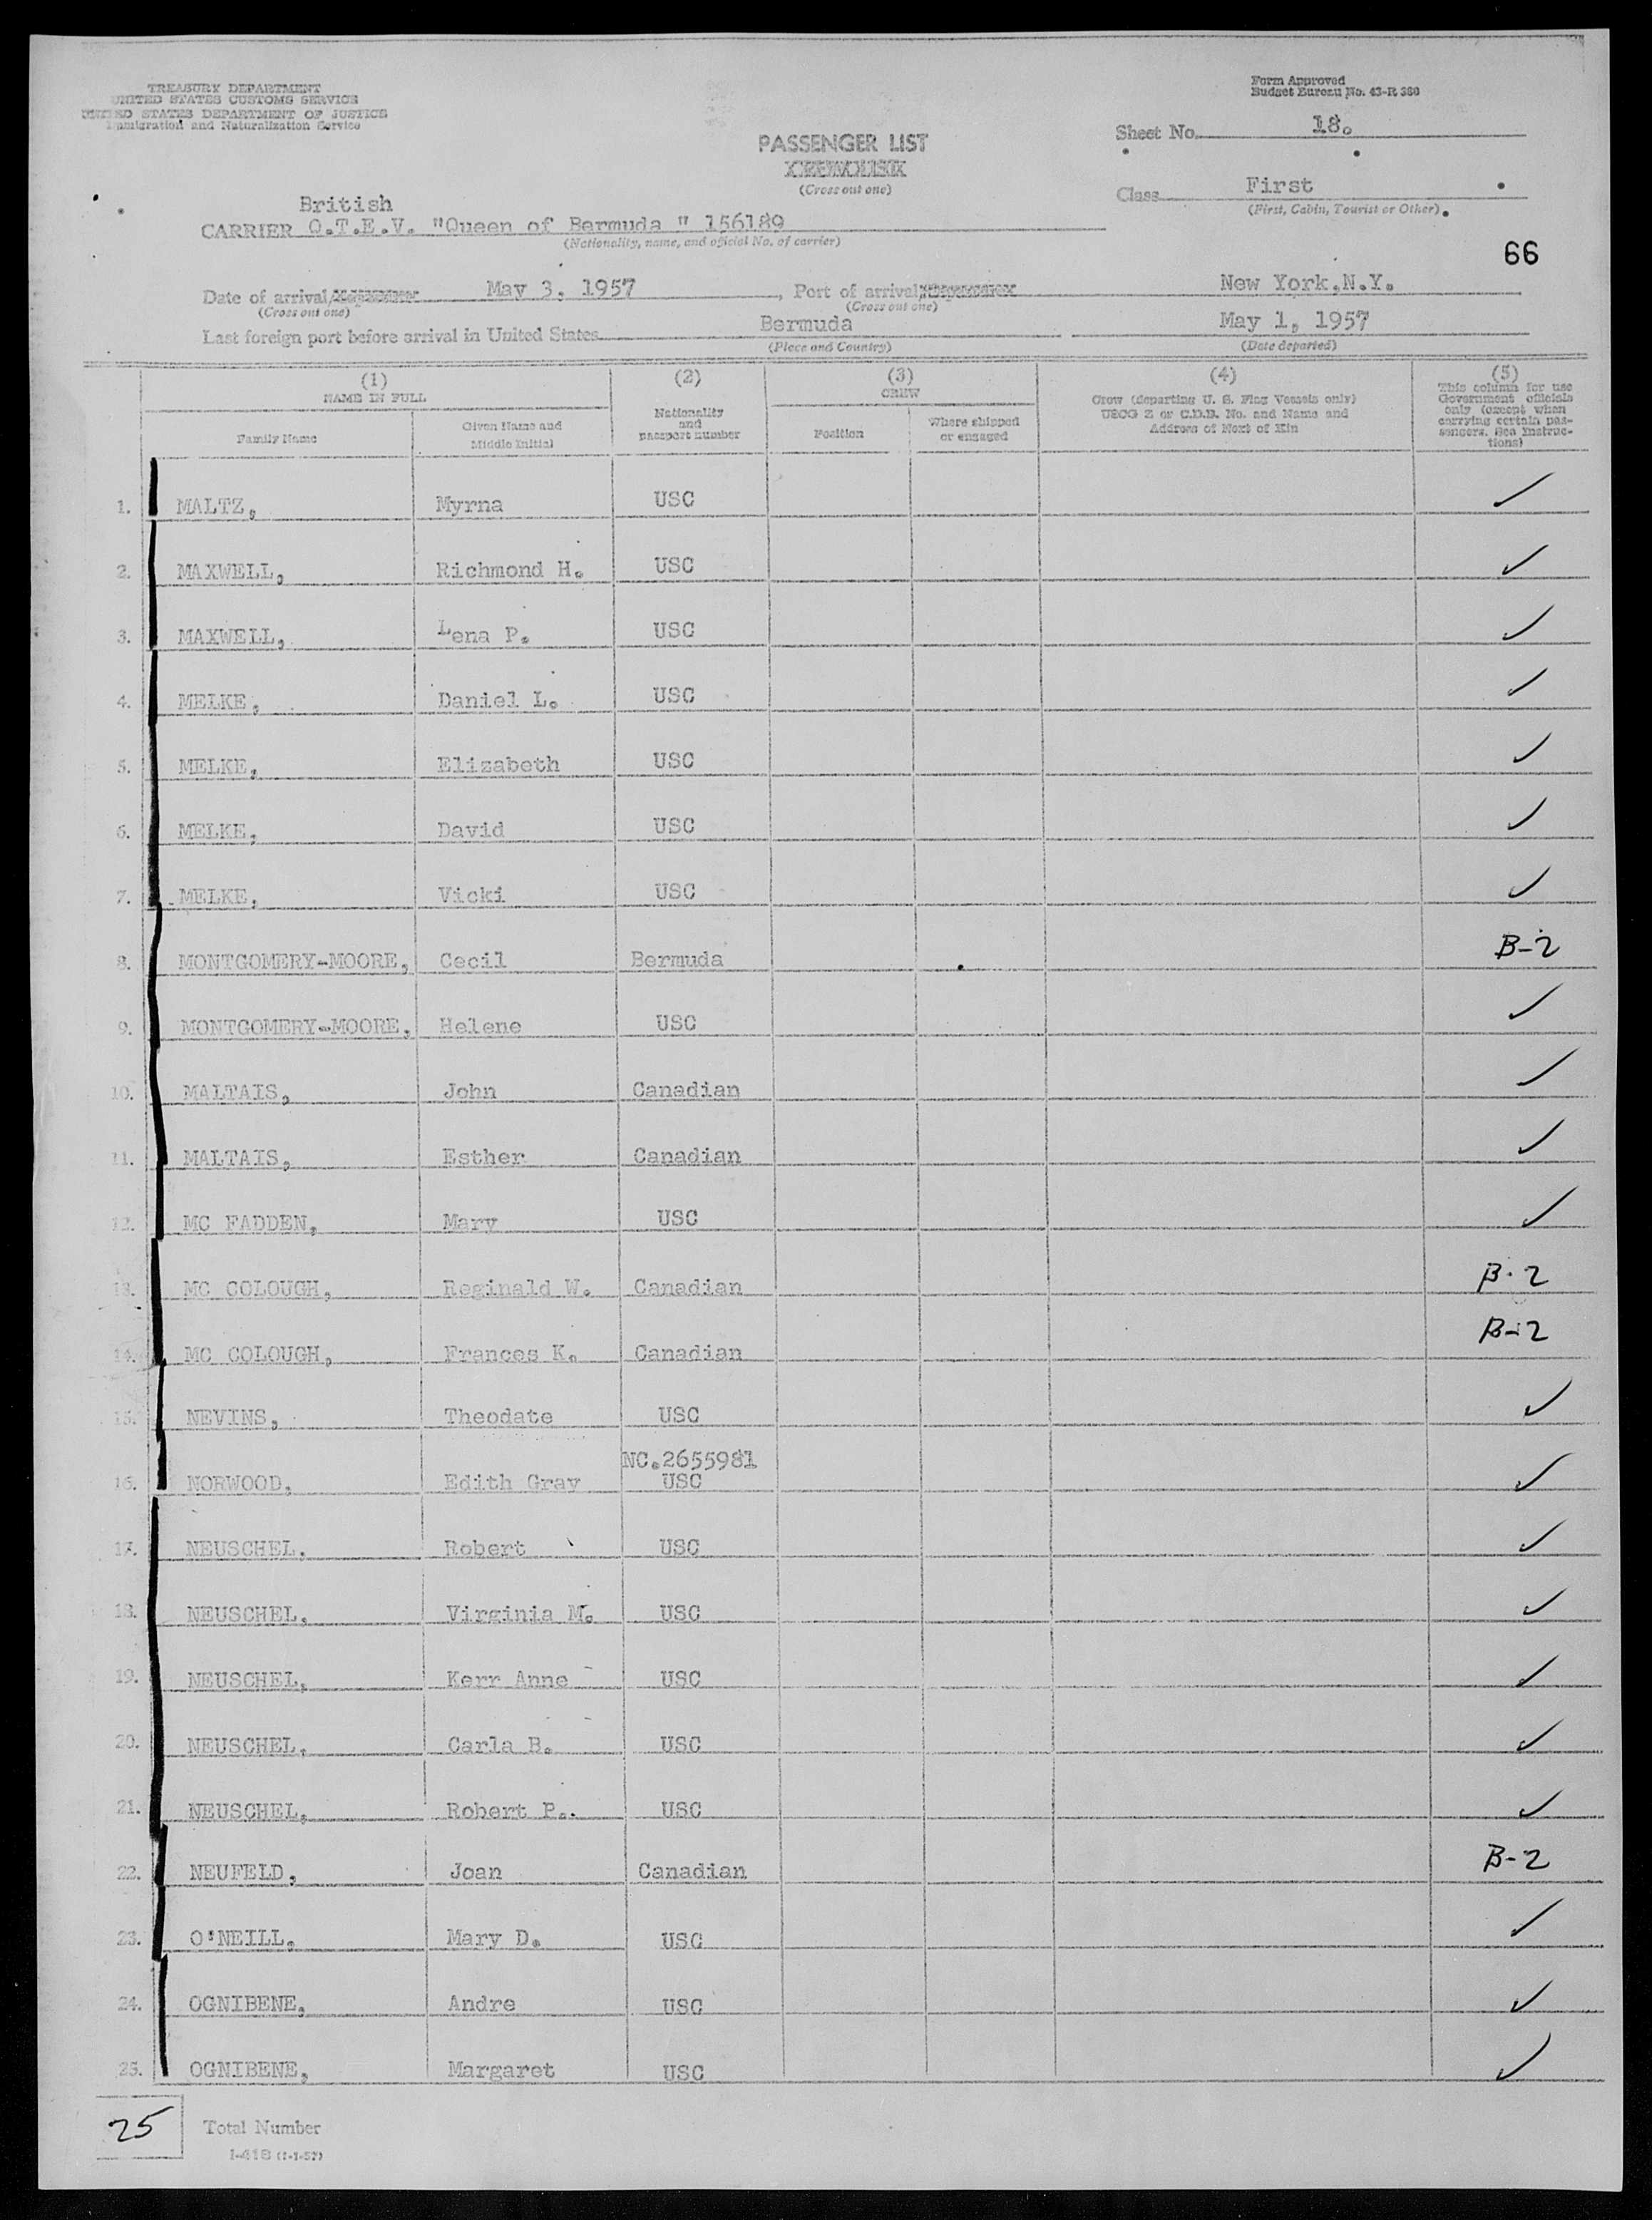 TREASURY DEPARTMENT
UNITED STATES CUSTOMS SERVICE
UNITED STATES DEPARTMENT OF JUSTICE
Immigration and Naturalization Service
Form Approved
Budget Bureau No. 43-R 380
PASSENGER LIST
(Cross out one)
Sheet No. 18.
Class First
(First, Cabin, Tourist or Other).
British
CARRIER O.T.E.V. "Queen of Bermuda " 156189
(Nationality, name, and official No. of carrier)
66
Date of arrival May 3, 1957, Port of arrival New York,N.Y.
(Cross out one) (Cross out one)
Last foreign port before arrival in United States Bermuda May 1, 1957
(Place and Country) (Date departed)
(1) (2) (3) (4) (5)
NAME IN FULL
Family Name
Given Name and Middle Initial
Nationality and passport number
CREW
Position
Where shipped or engaged
Crew (departing U. S. Flag Vessels only)
USCG Z or C.D.B. No. and Name and
Address of Next of Kin
This column for use
Government officials
only (except when
carrying certain pas-
sengers. See Instruc-
tions)
1. MALTZ, Myrna USC ✓
2. MAXWELL, Richmond H. USC ✓
3. MAXWELL, Lena P. USC ✓
4. MELKE, Daniel L. USC ✓
5. MELKE, Elizabeth USC ✓
6. MELKE, David USC ✓
7. MELKE, Vicki USC ✓
8. MONTGOMERY-MOORE, Cecil Bermuda B-2
9. MONTGOMERY-MOORE, Helene USC ✓
10. MALTAIS, John Canadian ✓
11. MALTAIS, Esther Canadian ✓
12. MC FADDEN, Mary USC ✓
13. MC COLOUGH, Reginald W. Canadian B-2
14. MC COLOUGH, Frances K. Canadian B-2
15. NEVINS, Theodate USC ✓
NC.2655981
16. NORWOOD, Edith Gray USC ✓
17. NEUSCHEL, Robert USC ✓
18. NEUSCHEL, Virginia M. USC ✓
19. NEUSCHEL, Kerr Anne USC ✓
20. NEUSCHEL, Carla B. USC ✓
21. NEUSCHEL, Robert P.. USC ✓
22. NEUFELD, Joan Canadian B-2
23. O'NEILL, Mary D. USC ✓
24. OGNIBENE, Andre USC ✓
25. OGNIBENE, Margaret USC ✓
25 Total Number
I-418 (1-1-57)